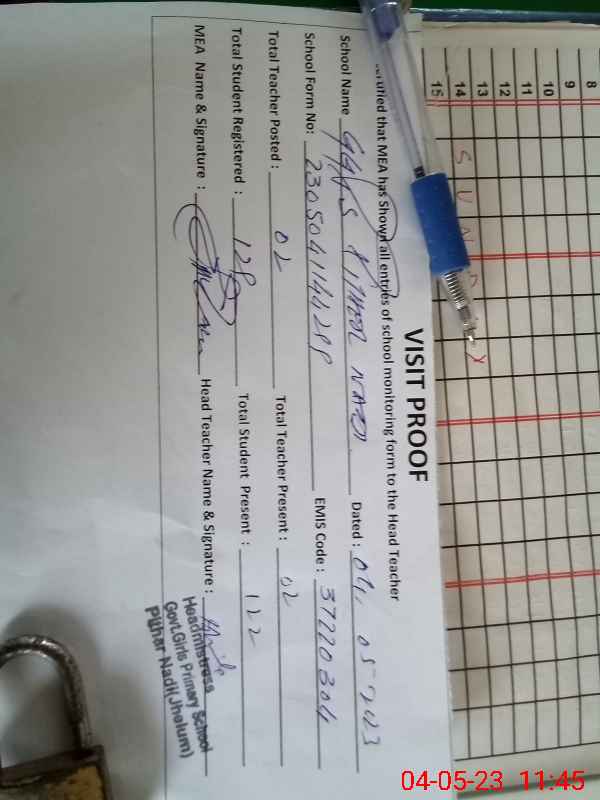 VISIT PROOF
rtified that MEA has Shown all entries of school monitoring form to the Head Teacher
School Name GGPS PITHAR NADI Dated : 04, 05-2023
School Form No: 23050411 EMIS Code : 37220304
Total Teacher Posted : 02 Total Teacher Present : 02
Total Student Registered : 128 Total Student Present : 122
MEA Name & Signature : Head Teacher Name & Signature :
Headmistress
Govt.Girls Primary School
Pithar Nadi(Jhelum)
8
9
10
11
12
13
14
15
SUNDAY
04-05-23 11:45